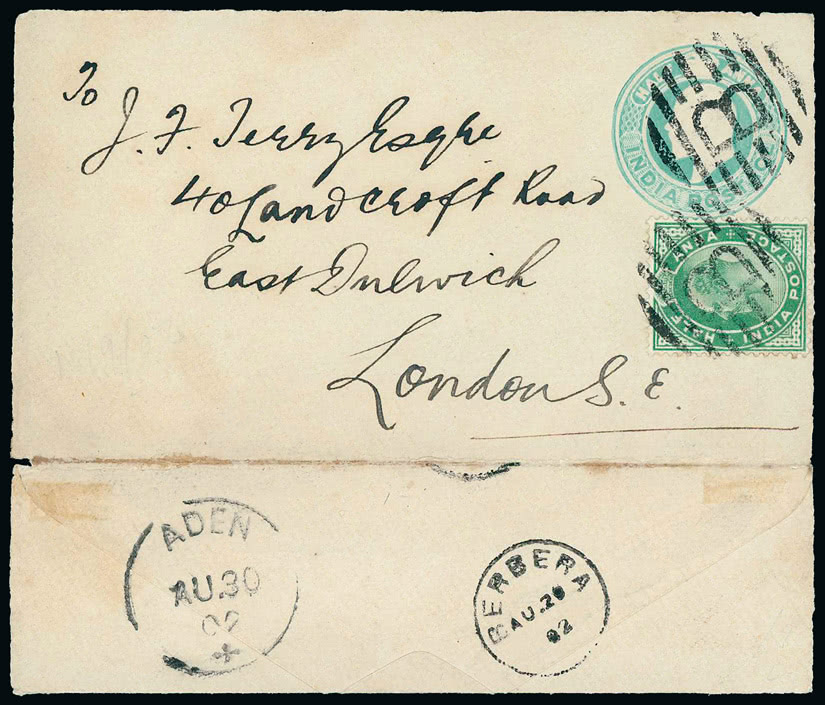 To
J. F. Terry Esqre
40 Landcroft Road
East Dulwich
London S. E.
HALF ANNA
INDIA POSTAGE
B
HALF ANNA
INDIA POSTAGE
B
ADEN
AU.30
02
BERBERA
AU.29
02